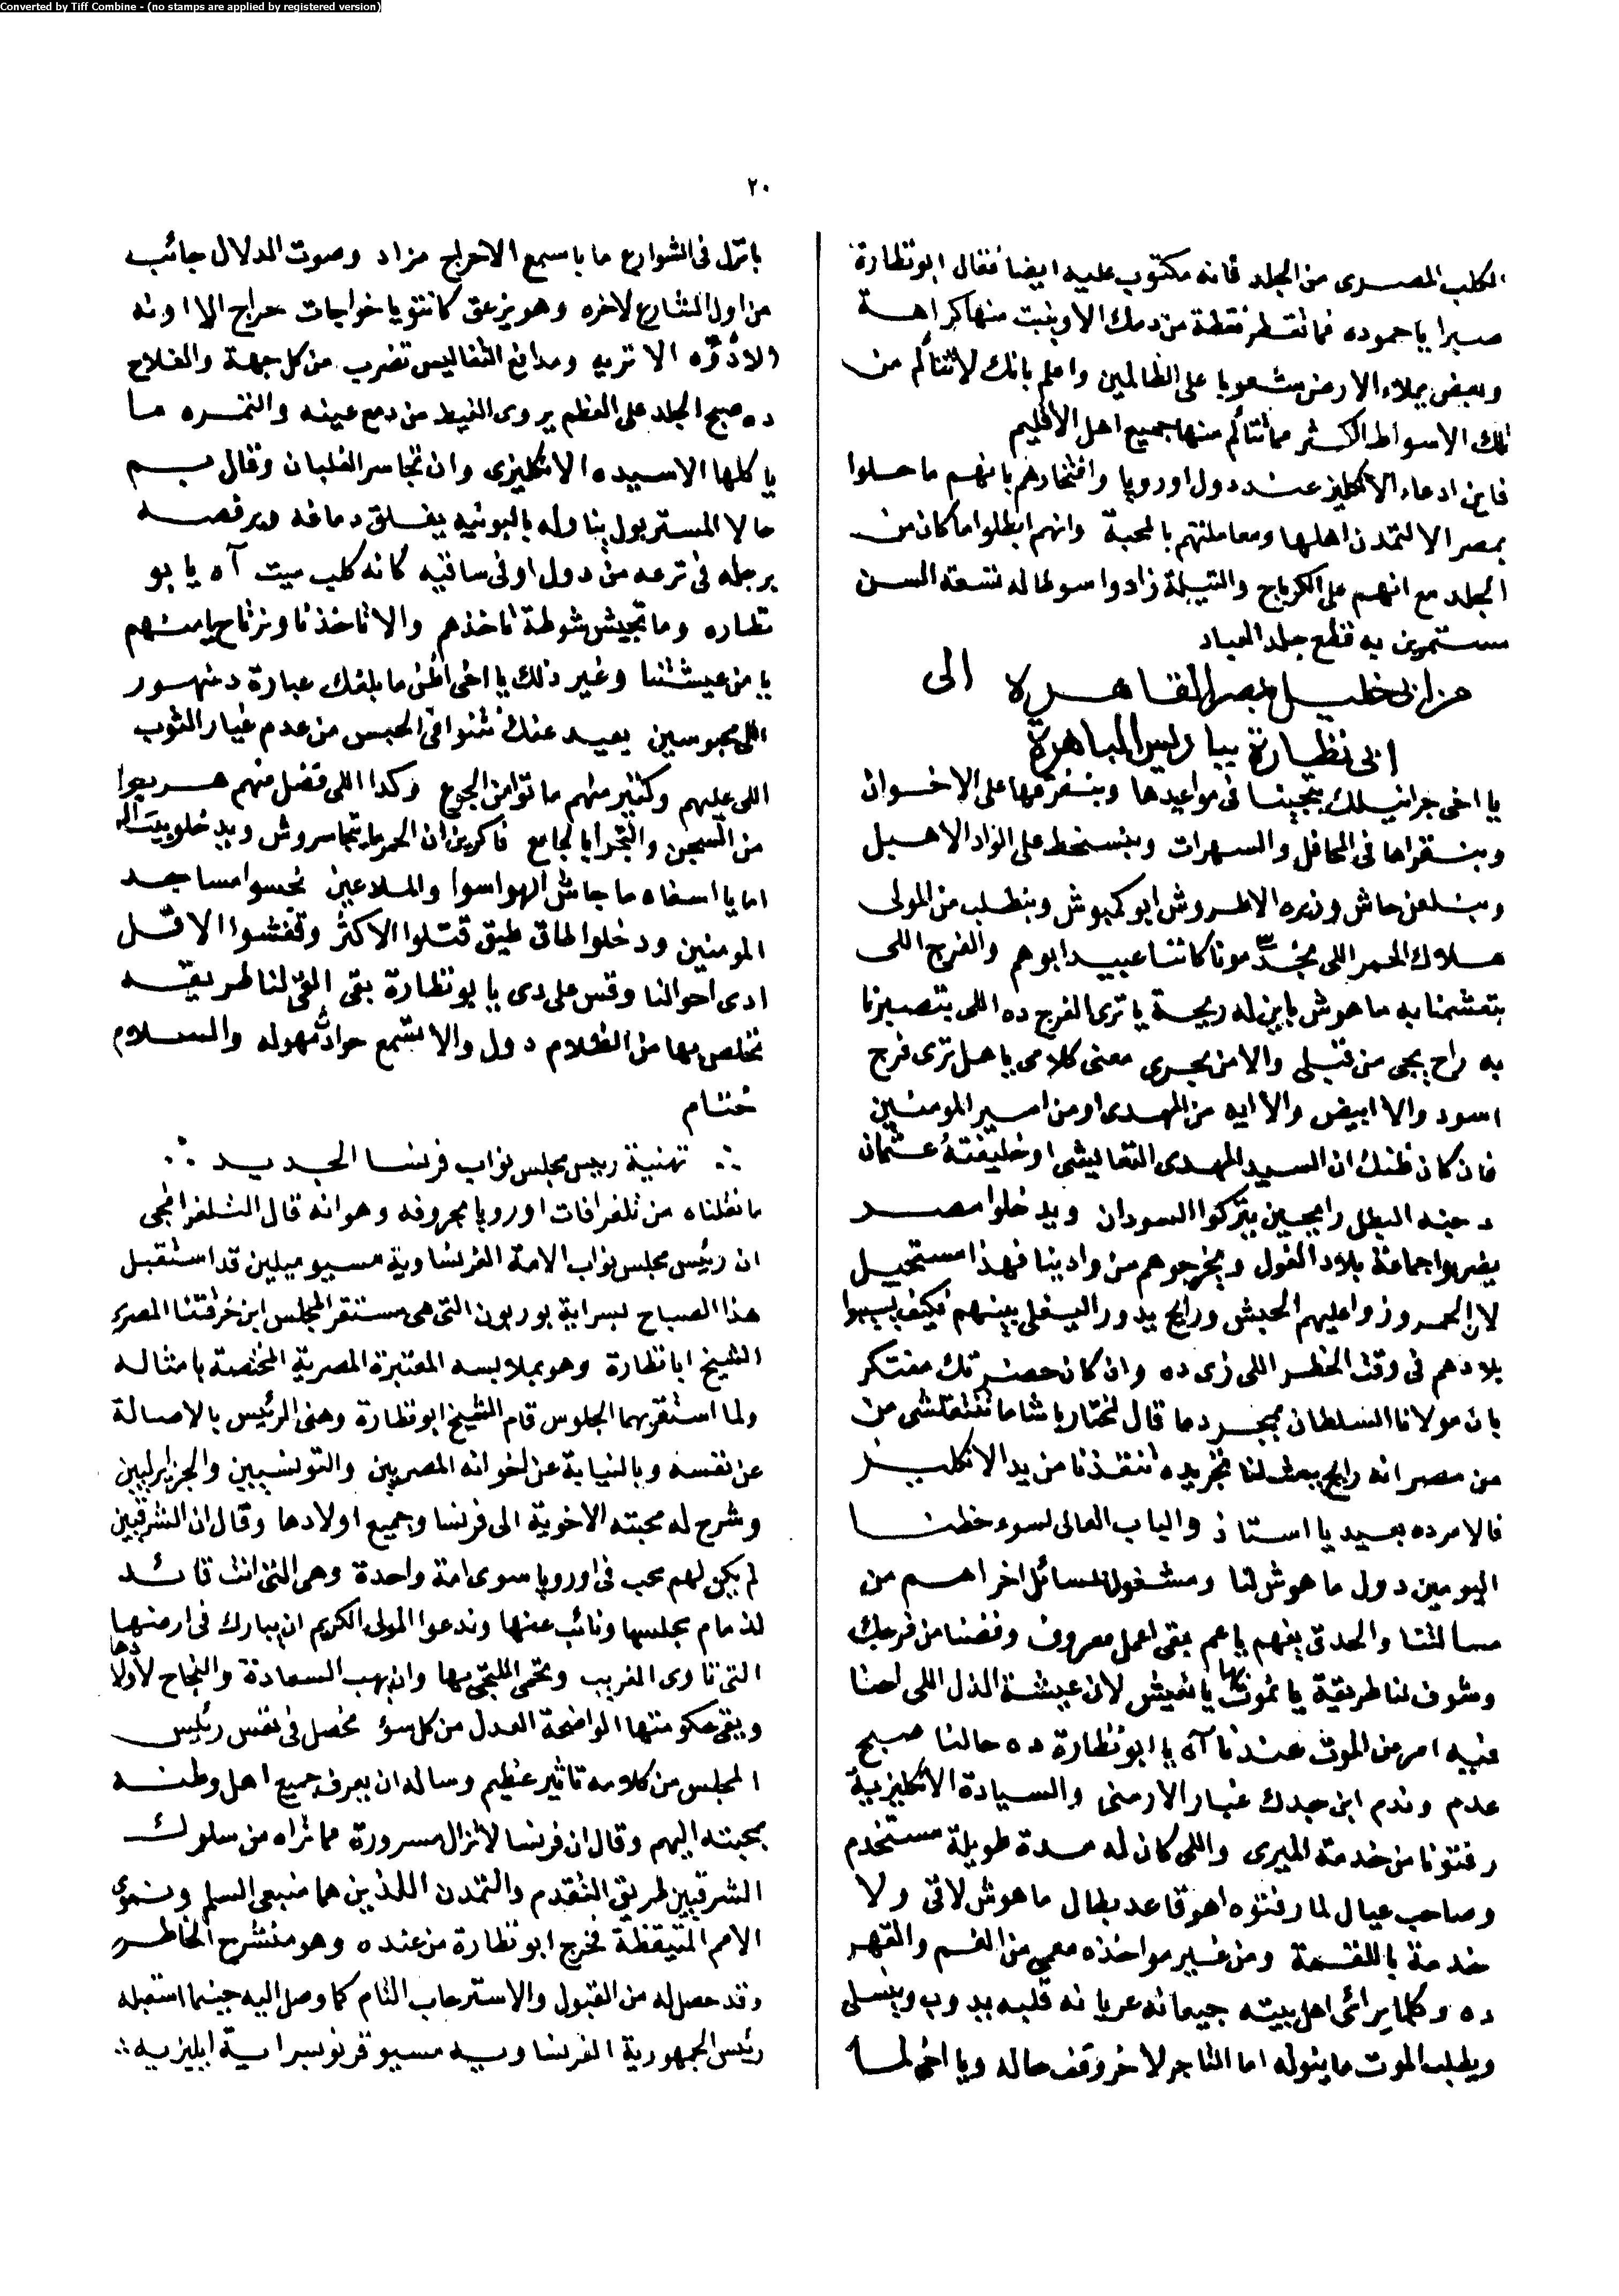 Converted by Tiff Combine - (no stamps are applied by registered version)
٢٠
الكلب المصرى من الجلد فانه مكتوب عليه ايضا فقال ابو نظارة
صبرا يا حموده فما تقطر نقطة من دمك الا وينبت منها كراهة
وبغض يملاء الارض شعوبا على الظالمين واعلم بانك لا تتألم من
تلك الاسواط اكثر مما تتألم منها جميع اهل الاقليم
فاين ادعاء الانكليز عند دول اوروپا وافتخارهم بانهم ما حلوا
بمصر الا لتمدن اهلها ومعاملتهم بالمحبة وانهم ابطلوا ما كان من
الجلد مع انهم على الكرباج والتيلة زادوا سوطا له تسعة السن
مستمرين به قطع جلد العباد
من ابى خليل بمصر القاهرة الى
ابى نظارة بباريس الباهرة
يا اخى جرانيلك بتجينا فى مواعيدها وبنفرقها على الاخوان
وبنقراها فى المحافل والسهرات وبنسخط على الواد الاهبل
وبنلعن حاش وزيره الاطروش ابو كمبوش وبنطلب من المولى
هلاك الحمر اللى مجدّ مونا كاننا عبيد ابوهم والفرج اللى
بتعشمنا به ما هوش باين له ريحة يا ترى الفرج ده اللى بتصبرنا
به راح يجى من قبلى والا من بحرى معنى كلامى يا هل ترى فرج
اسود والا ابيض والا ايه من المهدى او من امير المومنين
فان كان ظنك ان السيد المهدى التعايشى او خليفته عثمان
دجنه البطل رايحين يتركوا السودان ويدخلوا مصر
يضربوا جماعة بلاد الفول ويخرجوهم من وادينا فهذا مستحيل
لان الحمر وزوا عليهم الحبش ورايح يدور السيف بينهم فكيف يسيبوا
بلادهم فى وقت الخطر اللى زى ده وان كان حضرتك مفتكر
بان مولانا السلطان بمجرد ما قال لمختار باشا ما تنتقلشى من
من مصر انه رايح يبعث لنا تجريده تنقذنا من يد الانكليز
فالامر ده بعيد يا استاذ والباب العالى لسوء حظنا
اليومين دول ما هوش لنا ومشغول بمسائل اخر اهم من
مسالتنا والحدق يفهم يا عم بقى اعمل معروف وفضنا من فرحك
وشوف لنا طريقة يا نموت بها يا نعيش لان عيشة الذل اللى احنا
فيه امر من الموت عندنا آه يا ابو نظارة ده حالنا صبح
عدم وندم ابن جدك غبار الارض والسيادة الانكليزية
رفتونا من خدمة الميرى واللى كان له مدة طويلة مستخدم
وصاحب عيال لما رفتوه اهو قاعد بطال ما هوش لاقى ولا
خدمة باللقمة ومن غير مواخذه معمى من الغم والقهر
ده وكلما يرائى اهل بيته جيعانه عريانه قلبه يدوب وينسلى
ويطلب الموت ما ينوله اما التاجر لاخر وقف حاله ويا اخى لما
بانزل فى الشوارع ما باسمع الا حراج مزاد وصوت الدلال جائب
من اول الشارع لاخره وهو يزعق كانتو يا خواجات حراج الا اونه
الا دُوّه الا تريه ومدافع التفاليس تضرب من كل جهة والفلاح
ده صبح الجلد على العظم يروى الغيط من دمع عينه والثمره ما
ياكلها الا سيده الانكليزى وان تجاسر الغلبان وقال بم
حالا المستر بول يناوله بالبونيه يفلق دماغه ويرفصه
برجله فى ترعه من دول او فى ساقيه كانه كلب ميت آه يا بو
نظاره وما تجيش شوطة تاخذهم والا تاخذنا ونرتاح يا منهم
يا من عيشتنا وغير ذلك يا اخى اظن ما بلغك عبارة دمنهور
اللى محبوسين بعيد عنك نتنوا فى الحبس من عدم غيار الثوب
اللى عليهم وكثير منهم ماتوا من الجوع وكدا اللى فضل منهم هربوا
من السجن والتجرا بالجامع فاكرين ان الحمر ما يتجاسروش ويدخلوا بيت الله
اما يا اسفاه ما جاش الهواسوا والملاعين نحسوا مساجد
المومنين ودخلوا لطاق طيق قتلوا الاكثر وقفشوا الاقل
ادى احوالنا وقس على دى يا بو نظارة بقى القى لنا طريقه
نخلص بها من الظلام دول والا تسمع حوادث مهوله والسلام
ختام
تهنية رييس مجلس نواب فرنسا الجديد
ما نقلناه من تلغرافات اوروپا بحروفه وهو انه قال التلغرافجى
ان رئيس مجلس نواب الامة الفرنساوية مسيو ميلين قد استقبل
هذا الصباح بسراية بوربون التى هى مستقر المجلس ابن خرقتنا المصرى
الشيخ ابا نظارة وهو بملابسه المعتبرة المصرية المختصة بامثاله
ولما استقر بهما الجلوس قام الشيخ ابو نظارة وهنى الرئيس بالاصالة
عن نفسه وبالنيابة عن اخوانه المصريين والتونسيين والجزايرليين
وشرح له محبته الاخوية الى فرنسا وجميع اولادها وقال ان الشرقيين
لم يكن لهم محب فى اوروپا سوى امة واحدة وهى التى انت قائد
لذمام مجلسها ونائب عنها وندعوا المولى الكريم ان يبارك فى ارضها
التى تاوى الغريب وتحمى الملتجى بها وان يهب السعادة والنجاح لاولادها
ويقى حكومتها الواضحة العدل من كل سؤ فحصل فى نفس رئيس
المجلس من كلامه تاثير عظيم وساله ان يعرف جميع اهل وطنه
بمحبته اليهم وقال ان فرنسا لا تزال مسرورة مما تراه من سلوك
الشرقيين طريق التقدم والتمدن اللذين هما منبعى السلم ونمو
الامم المتيقظة فخرج ابو نظارة من عنده وهو منشرح الخاطر
وقد حصل له من القبول والاسترحاب التام كما وصل اليه حينما استقبله
رئيس الجمهورية الفرنساويه مسيو قرنو بسراية ايليزيه